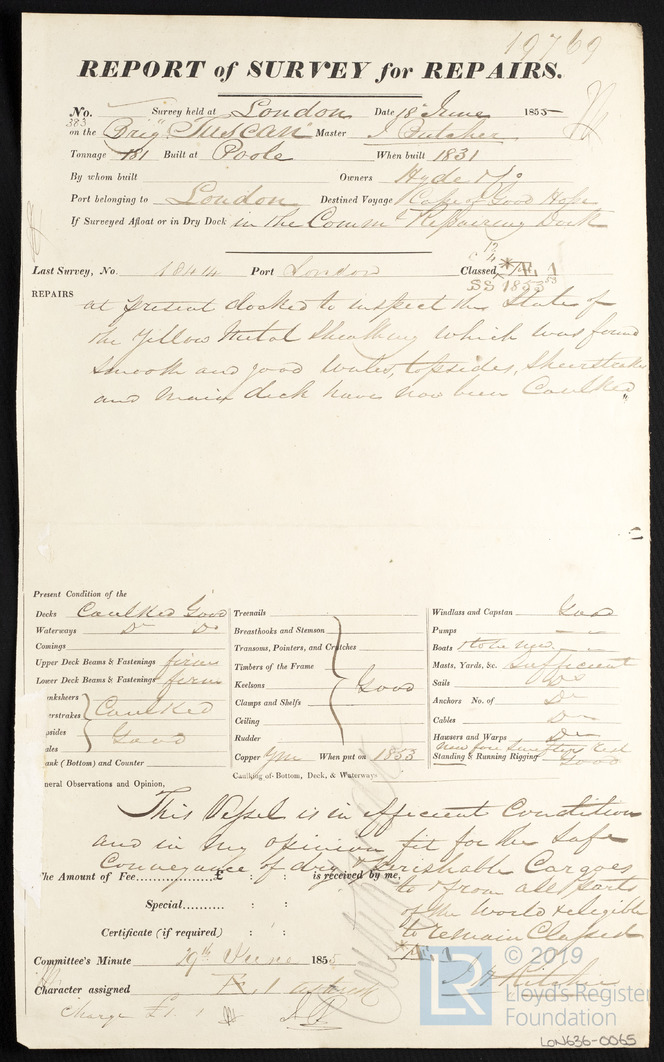 19769
REPORT of SURVEY for REPAIRS.
No. 383 Survey held at London Date 18 June 1855
on the Brig "Tuscan" Master J. Butcher
Tonnage 181 Built at Poole When built 1831
By whom built Owners Hyde & Co
Port belonging to London Destined Voyage Cape of Good Hope
If Surveyed Afloat or in Dry Dock in the Comml Repairing Dock
Last Survey, No. 18414 Port London Classed *Æ 1
SS 1853
REPAIRS at present docked to inspect the State of
the Yellow Metal Sheathing which was found
smooth and good Wales, topsides, Sheerstrakes
and main deck have now been Caulked
Present Condition of the
Decks Caulked Good
Waterways Do Do
Comings
Upper Deck Beams & Fastenings firm
Lower Deck Beams & Fastenings firm
nksheers
erstrakes Caulked
psides Good
ales
ank (Bottom) and Counter
Treenails
Breasthooks and Stemson
Transoms, Pointers, and Crutches
Timbers of the Frame
Keelsons Good
Clamps and Shelfs
Ceiling
Rudder
Copper Ym When put on 1853
Caulking of-Bottom, Deck, & Waterways
Windlass and Capstan Good
Pumps
Boats 1 to be new
Masts, Yards, &c. Sufficient
Sails Do
Anchors No. of Do
Cables Do
Hawsers and Warps Do
new fore
Standing & Running Rigging Good
neral Observations and Opinion,
This Vessel is in efficient Condition
and in my opinion fit for the Safe
Conveyance of dry & Perishable Cargoes
to & from all parts
of the World & eligible
to remain Classed
*Æ 1
The Amount of Fee £ : : is received by me,
Special : :
Certificate (if required) : :
Committee's Minute 29th June 1855
Character assigned Æ 1
Charge £1. 1
© 2019
Lloyd's Register
Foundation
LON636-0065